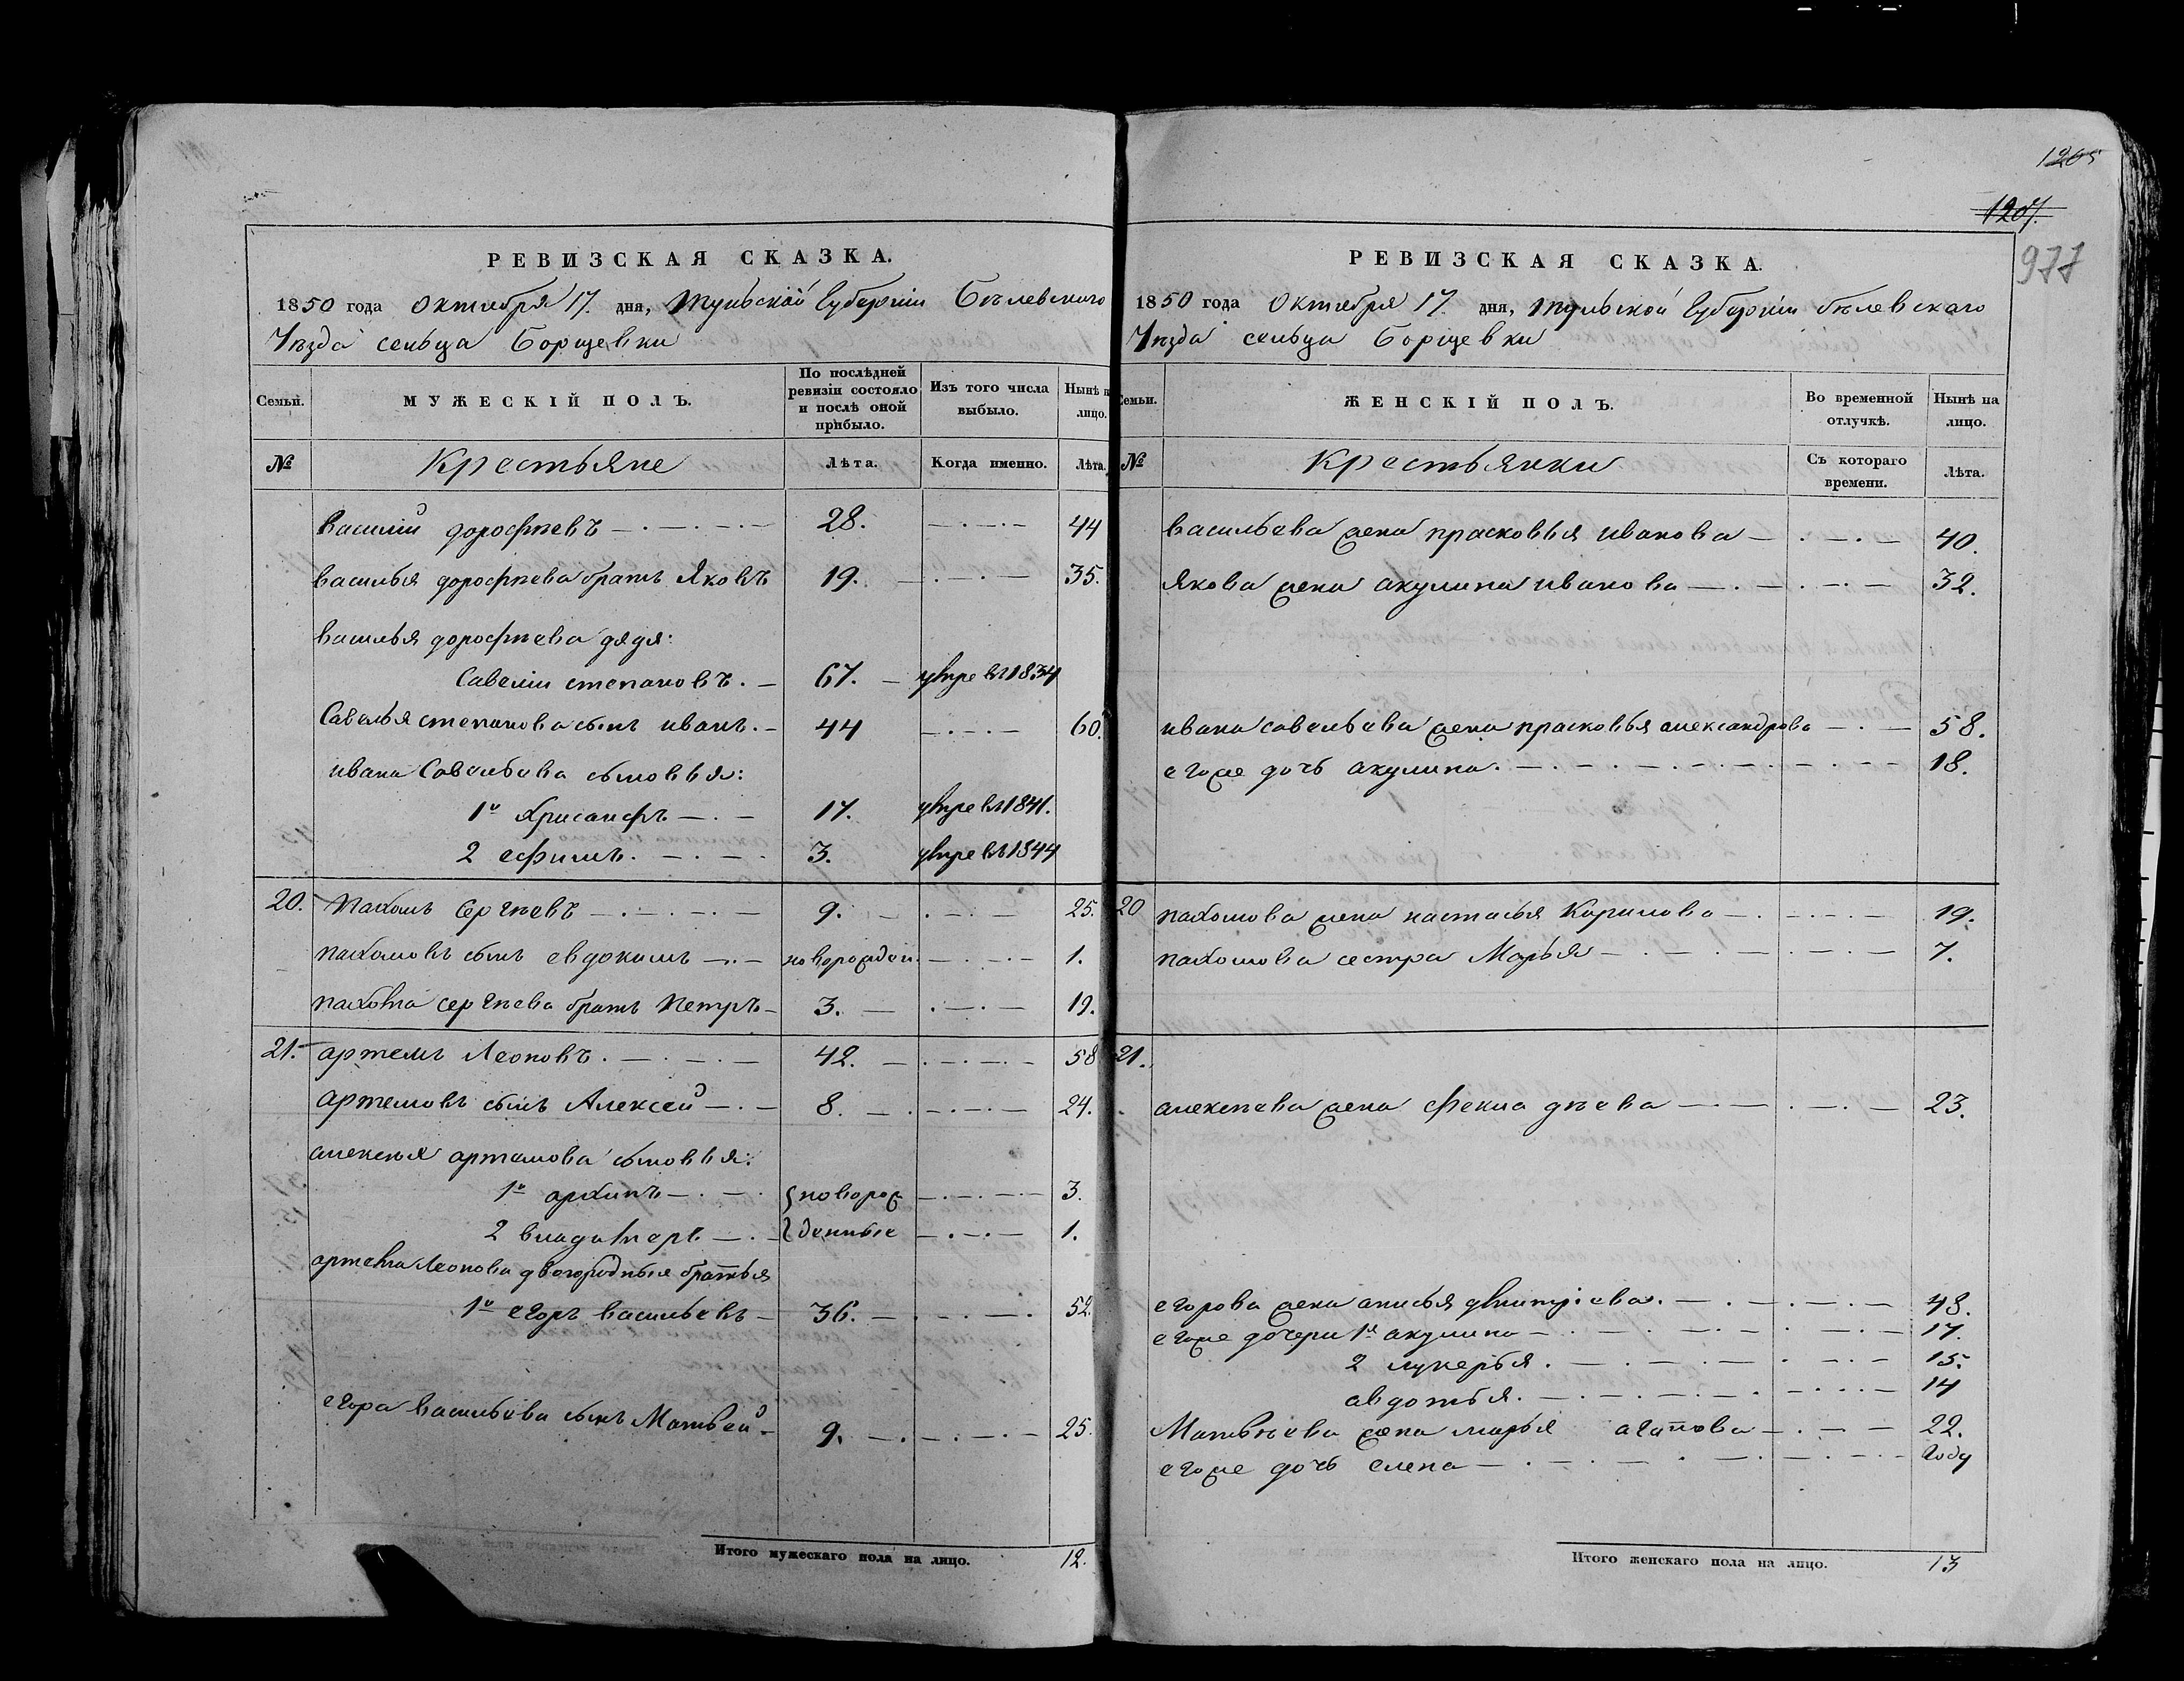 1205
1207.
977
РЕВИЗСКАЯ СКАЗКА.
1850 года Октября 17. дня, Тульской Губернiи Бѣлевскаго
Уѣзда сельца Борщевки
Семьи. МУЖЕСКIЙ ПОЛЪ. По послѣдней ревизiи состояло и послѣ оной прибыло. Изъ того числа выбыло. Нынѣ н лицо.
№ Крестьяне Лѣта. Когда именно. Лѣта.
Василiй дорофѣевъ 28. 44
василья дорофѣева братъ Яковъ 19. 35.
василья дорофѣева дядя:
Савелiй степановъ. 67. умре въ 1834
Савелья степанова сынъ иванъ. 44 60.
ивана Савельева сыновья:
1й Хрисанфъ 17. умре въ 1841.
2 ефимъ. 3. умре въ 1844
20. Пахомъ Сергѣевъ 9. 25.
пахомовъ сынъ евдокимъ новорожден. 1.
пахома сергѣева братъ Петръ 3. 19.
21. артемъ Леоновъ. 42. 58
артемовъ сынъ Алексей 8. 24.
алексея артемова сыновья:
1й архипъ новорож 3.
2 владимеръ денные 1.
артема Леонова двоюродные братья
1й егоръ васильевъ 36. 52.
егора васильева сынъ Матвей 9. 25.
Итого мужескаго пола на лицо. 12.
РЕВИЗСКАЯ СКАЗКА.
1850 года Октября 17. дня, Тульской Губернiи бѣлевскаго
Уѣзда сельца Борщевки
Семьи. ЖЕНСКIЙ ПОЛЪ. Во временной отлучкѣ. Нынѣ на лицо.
№ Крестьянки Съ котораго времени. Лѣта.
васильева жена прасковья иванова 40.
Якова жена акулина иванова 32.
ивана савельева жена прасковья александрова 58.
егоже дочь акулина. 18.
20 пахомова жена настасья Карпилова 19.
пахомова сестра Марья 7.
21.
алексѣева жена Фекла 23.
егорова жена анисья дмитрiева. 48.
егоже дочери 1я акулина 17.
2 лукерья. 15.
авдотья. 14
Матвѣева жена марья агапова 22.
егоже дочь елена году
Итого женскаго пола на лицо. 13